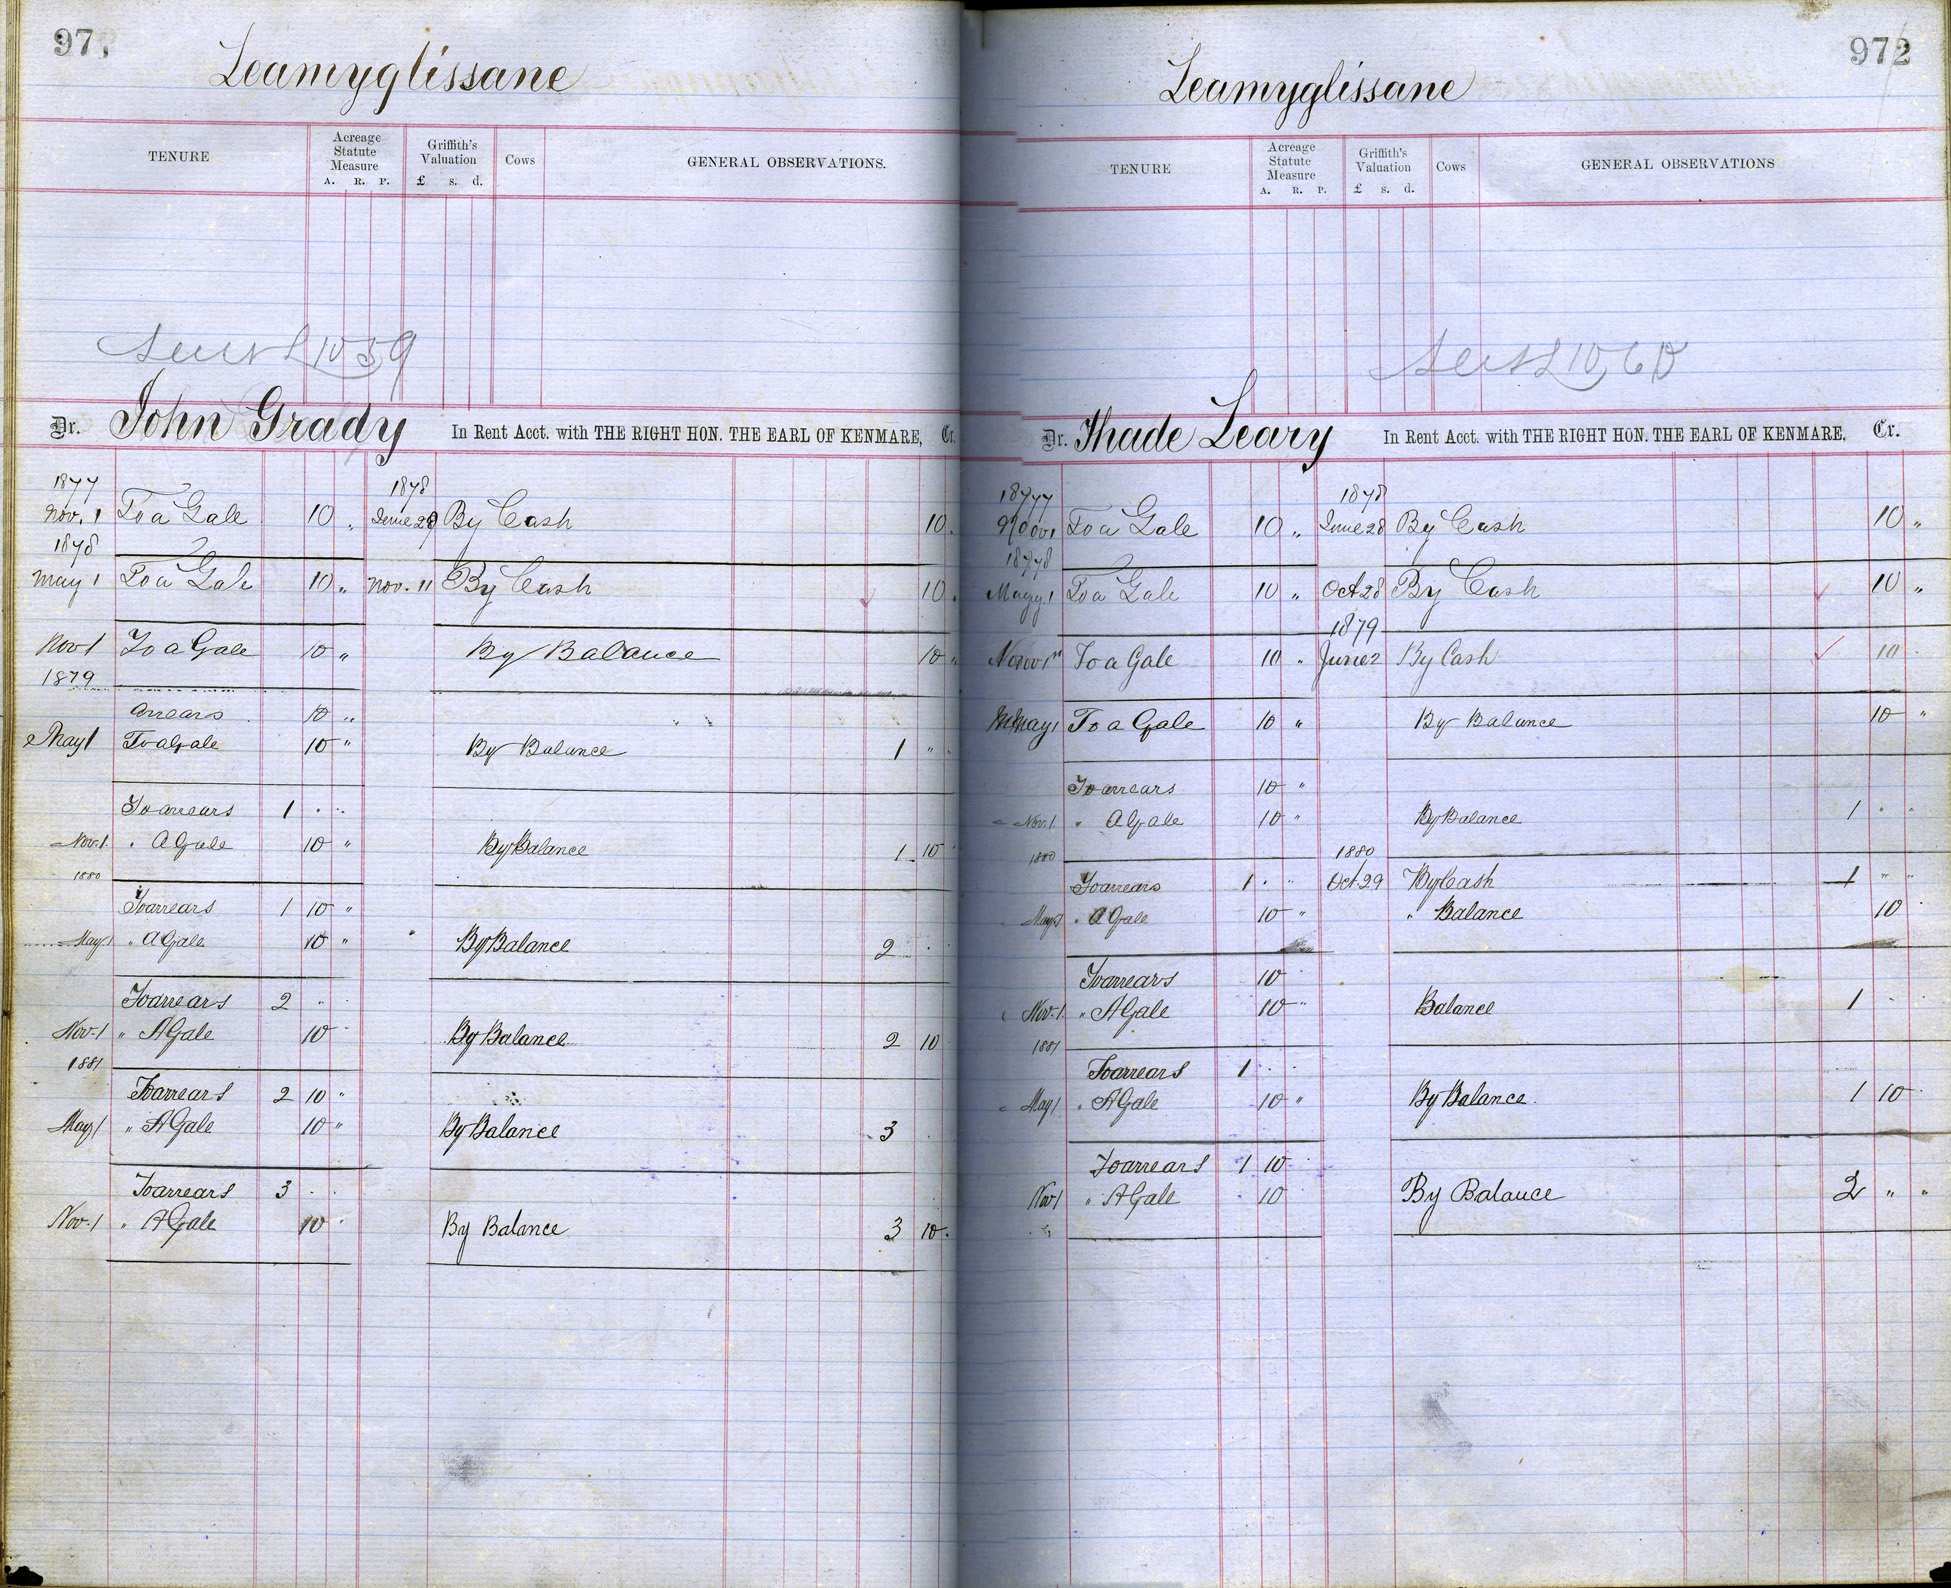 97
Leamyglissane
TENURE
Acreage Statute Measure
A. R. P.
Griffith's Valuation
£ s. d.
Cows
GENERAL OBSERVATIONS.
1059
Dr. John Grady In Rent Acct. with THE RIGHT HON. THE EARL OF KENMARE, Cr.
1877 1878
Nov. 1 To a Gale 10 " June 28 By Cash 10 .
1878
May 1 To a Gale 10 " Nov. 11 By Cash 10 .
Nov 1 To a Gale 10 " By Balance 10 "
1879
arrears 10 "
May 1 To a Gale 10 " By Balance 1 " "
To arrears 1 . .
Nov. 1 " A Gale 10 " By Balance 1 10 "
1880
To arrears 1 10 "
May 1 " A Gale 10 " By Balance 2 .
To arrears 2 " .
Nov. 1 " A Gale 10 By Balance 2 10
1881
To arrears 2 10 "
May 1 " A Gale 10 " By Balance 3
To arrears 3 . .
Nov. 1 " A Gale 10 . By Balance 3 10 .
972
Leamyglissane
TENURE
Acreage Statute Measure
A. R. P.
Griffith's Valuation
£ s. d.
Cows
GENERAL OBSERVATIONS
1060
Dr. Thade Leary In Rent Acct. with THE RIGHT HON. THE EARL OF KENMARE, Cr.
1877 1878
Nov 1 To a Gale 10 " June 28 By Cash 10 "
1878
May 1 To a Gale 10 " Oct 28 By Cash 10 "
1879
Nov 1st To a Gale 10 " June 2 By Cash 10 .
May 1 To a Gale 10 " By Balance 10 "
To arrears 10 "
Nov. 1 " A Gale 10 " By Balance 1 " "
1880 1880
To arrears 1 . . Oct. 29 By Cash 1 " "
May 1 " A Gale 10 " " Balance 10 .
To arrears 10 .
Nov. 1 " A Gale 10 " Balance 1 . .
1881
To arrears 1 . .
May 1 " A Gale 10 " By Balance 1 10 .
To arrears 1 10 .
Nov 1 " A Gale 10 By Balance 2 " "